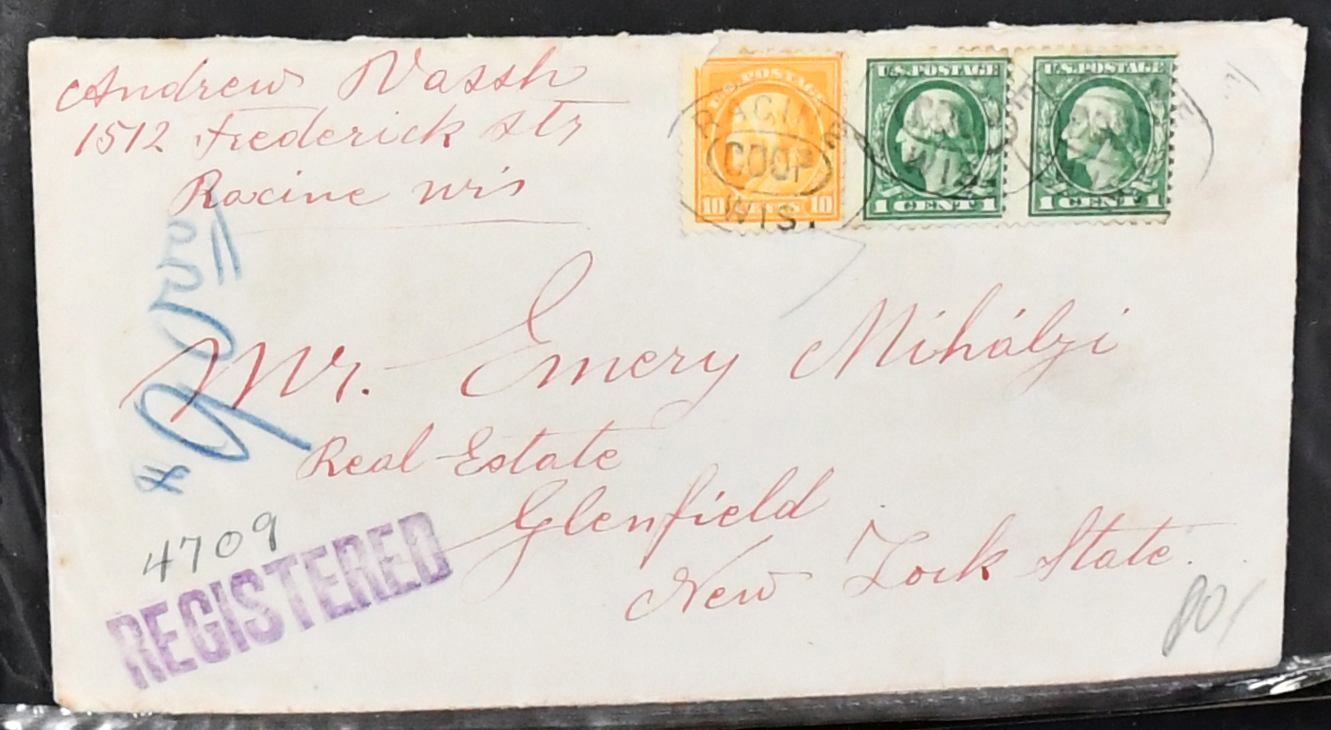 Andrew Vassh
1512 Frederick str
Racine Wis
U.S. POSTAGE
10 CENTS 10
U.S. POSTAGE
1 CENT 1
U.S. POSTAGE
1 CENT 1
RACINE
COOP
WIS.
Mr. Emery Mihályi
Real Estate
Glenfield
New York State.
4709
REGISTERED